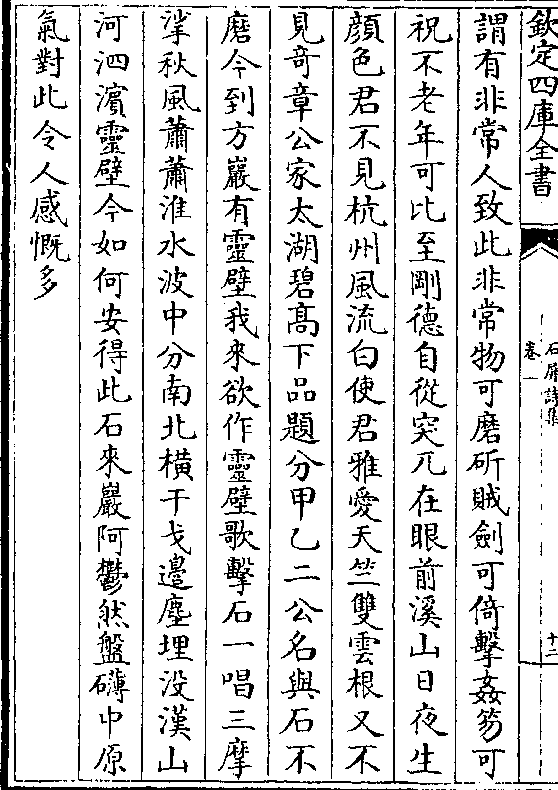 欽定四庫全書
石屏詩集
卷一
十二
謂有非常人致此非常物可磨斫賊劍可倚擊姦笏可
祝不老年可比至剛德自從突兀在眼前溪山日夜生
顔色君不見杭州風流白使君雅愛天竺雙雲根又不
見奇章公家太湖碧髙下品題分甲乙二公名與石不
磨今到方巖有靈壁我來欲作靈壁歌擊石一唱三摩
挲秋風蕭蕭淮水波中分南北横干戈邊塵埋没漢山
河泗濵靈壁今如何安得此石來巖阿鬱然盤礴中原
氣對此令人感慨多